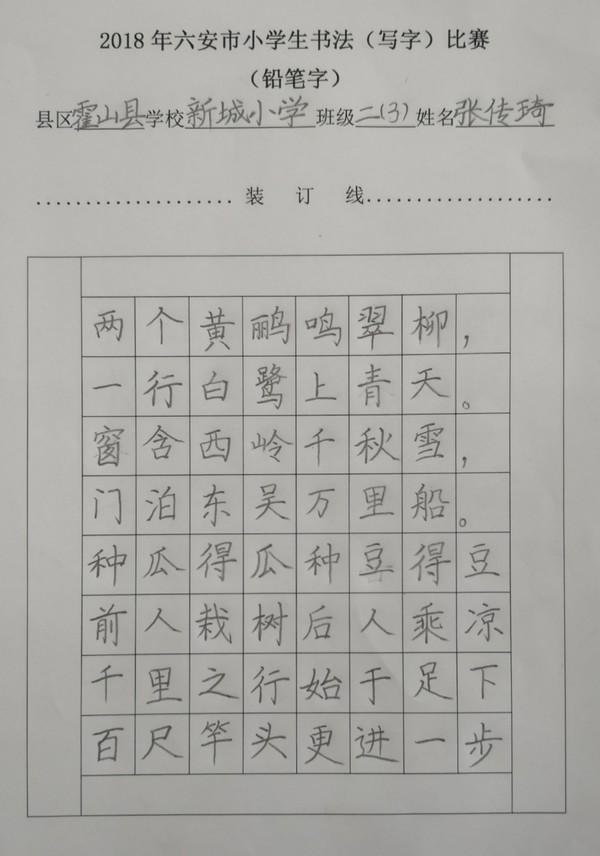 2018年六安市小学生书法（写字）比赛
（铅笔字）
县区霍山县学校新城小学班级二(3)姓名张传琦
....................装 订 线....................
两个黄鹂鸣翠柳，
一行白鹭上青天。
窗含西岭千秋雪，
门泊东吴万里船。
种瓜得瓜种豆得豆
前人栽树后人乘凉
千里之行始于足下
百尺竿头更进一步